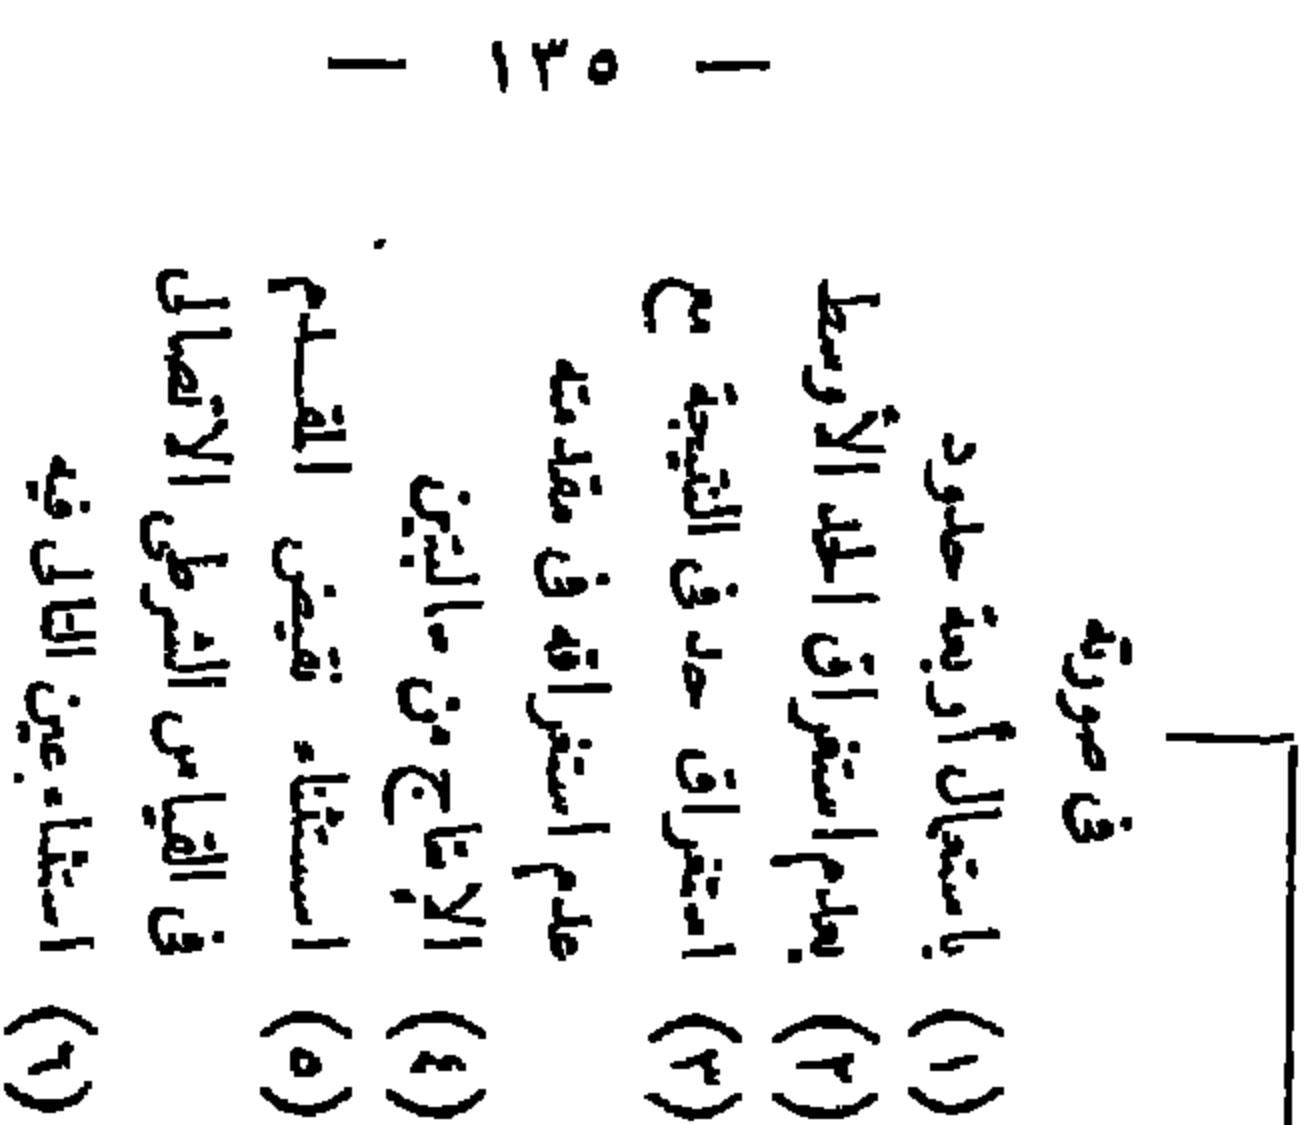 — ١٣٥ —
في صورته
(١) باستعمال أربعة حدود
(٢) بعدم استغراق الحد الأوسط
(٣) استغراق حد في النتيجة مع
عدم استغراقه في مقدمته
(٤) الإنتاج من سالبتين
(٥) استثناء نقيض المقدم
في القياس الشرطي الاتصالي
(٦) استثناء عين التالي فيه